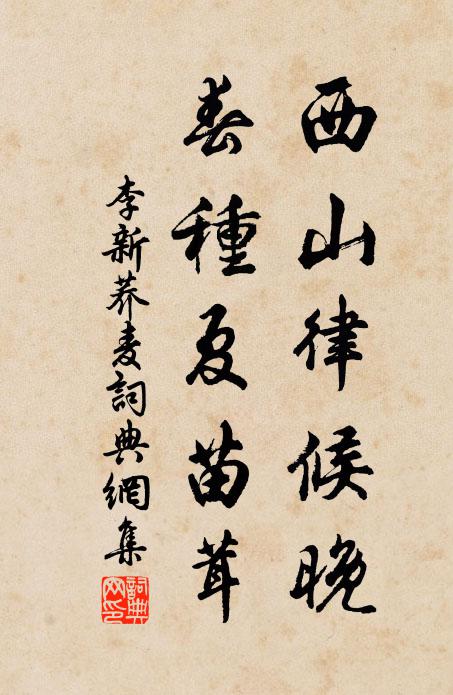 西山律候晚
春種夏苗茸
李新荞麦詞典網集
詞典网印